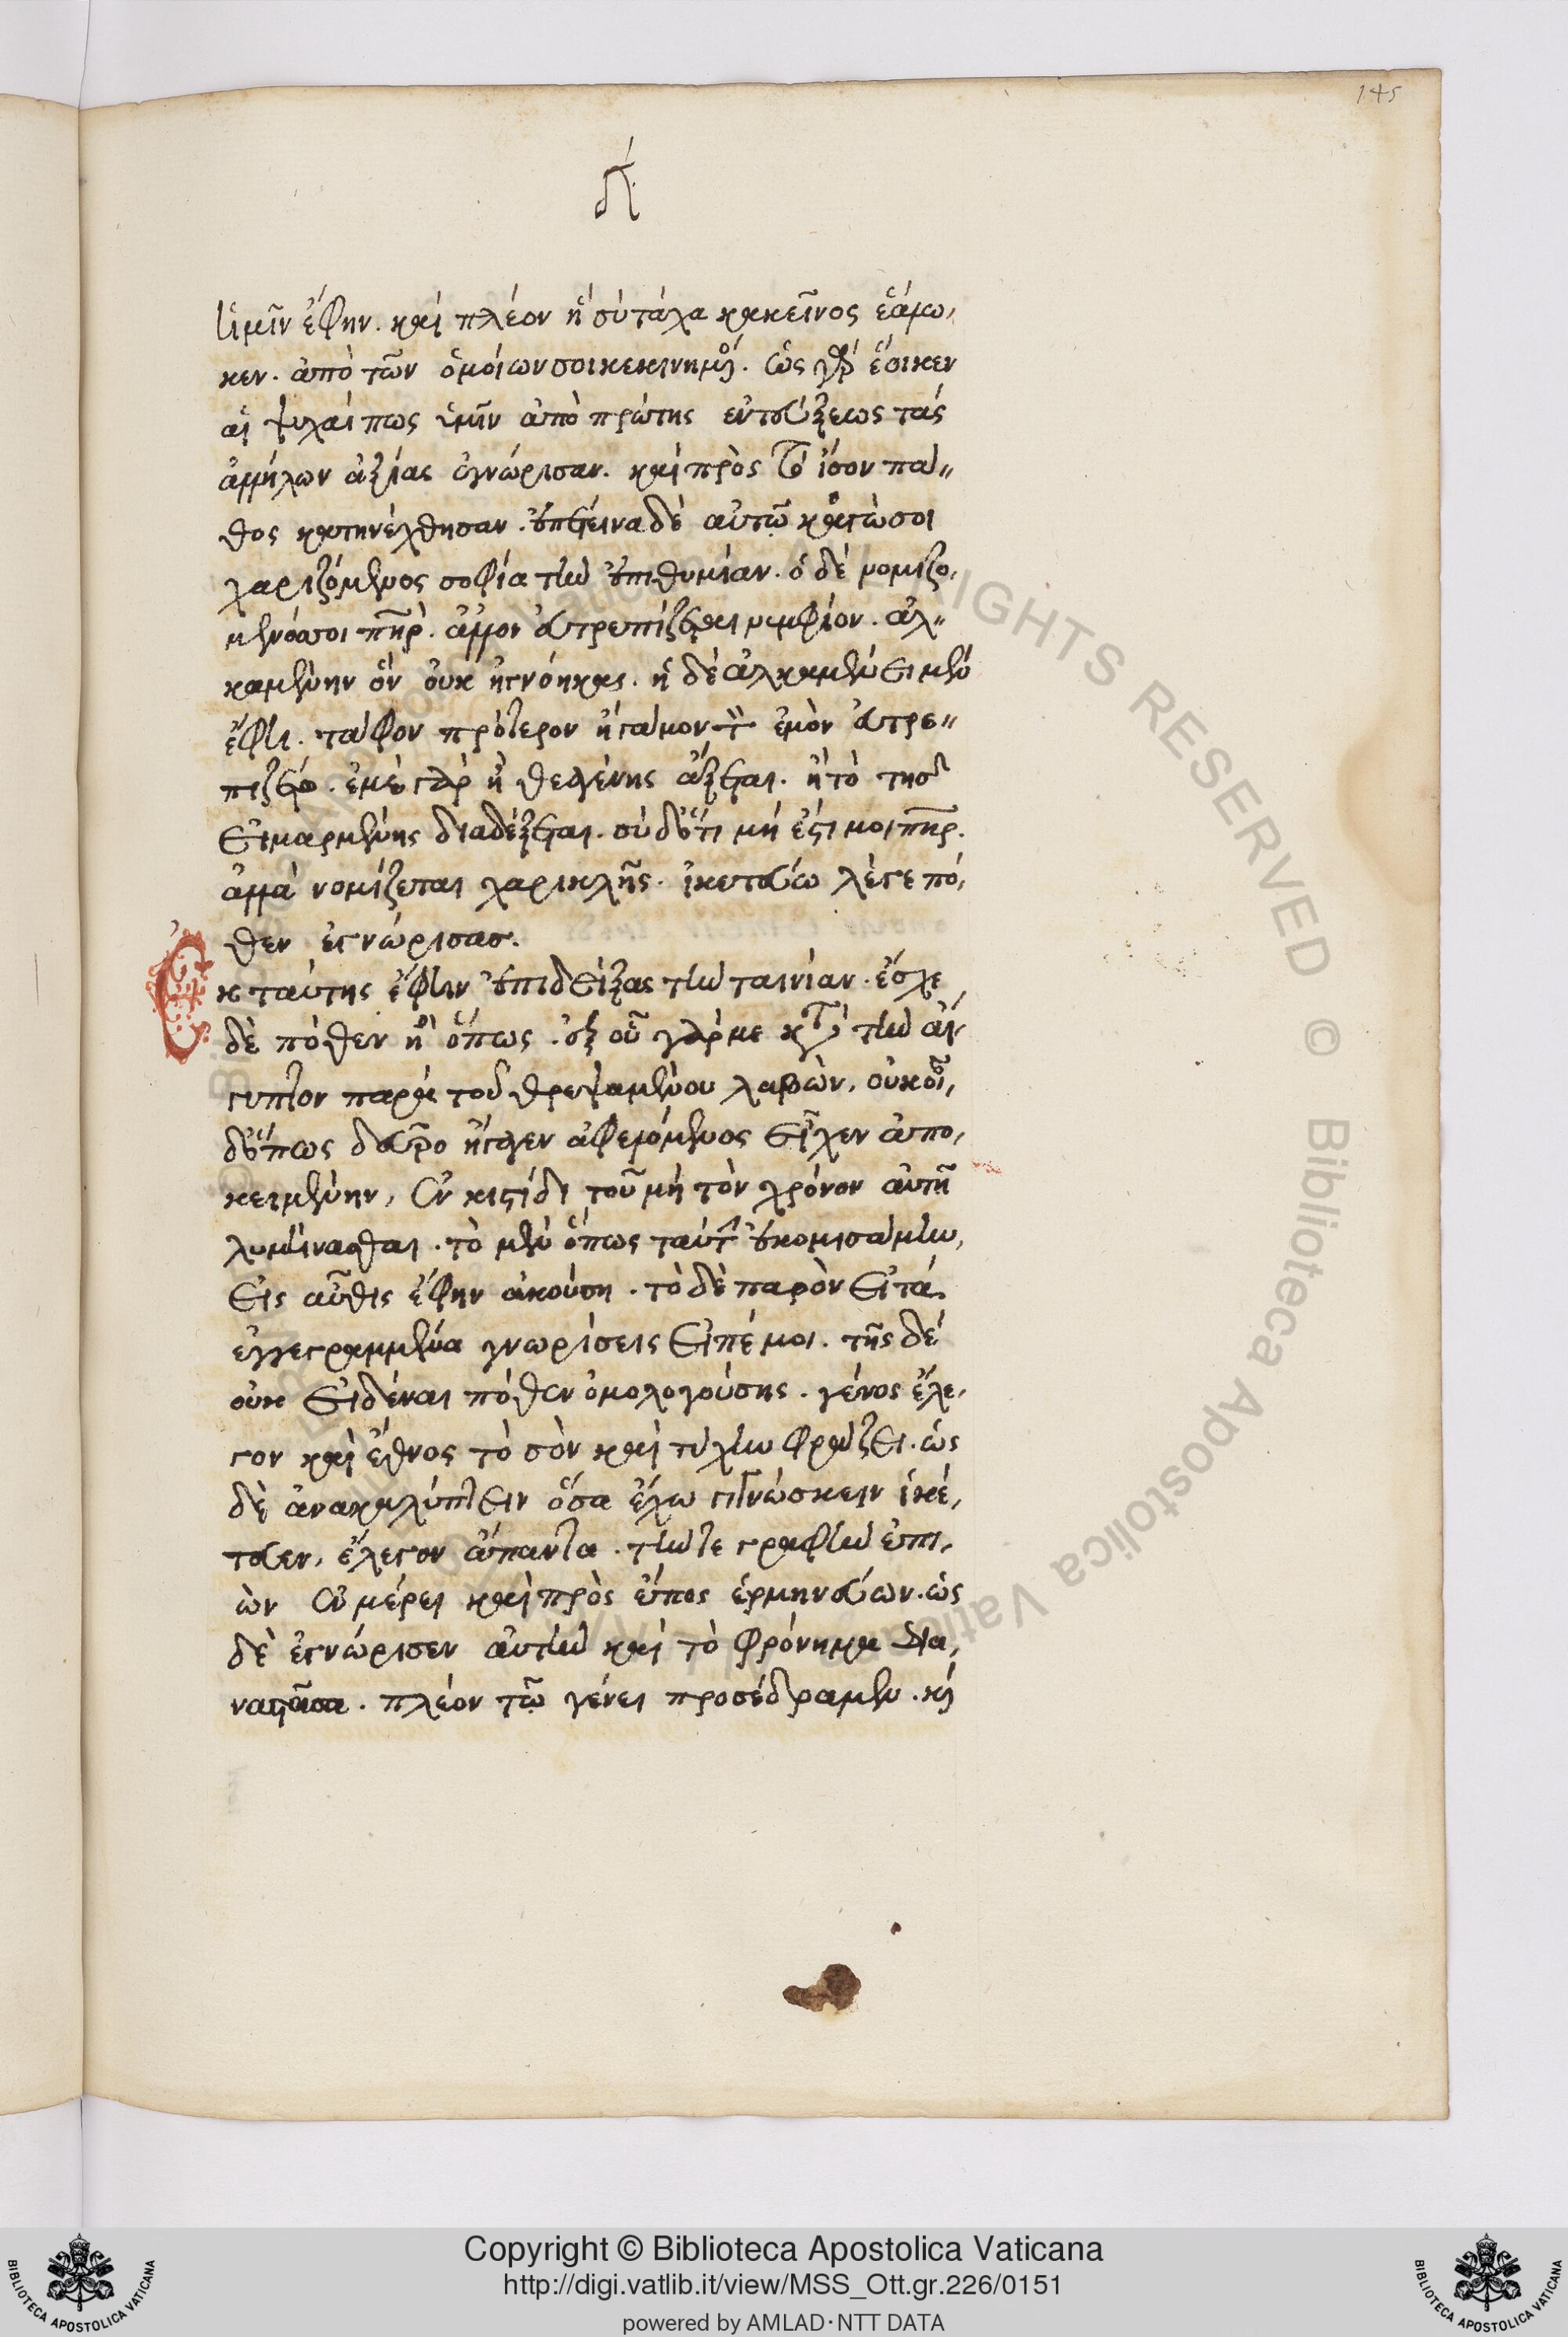 145
δ΄
ἡμῖν ἔφην. καὶ πλέον ἢ σὺ τάχα κἀκεῖνος ἑάλω,
κεν. ἀπὸ τῶν ὁμοίων σοι κεκινημένος. ὡς γὰρ ἔοικεν
αἱ ψυχαί πως ὑμῖν ἀπὸ πρώτης ἐντεύξεως τὰς
ἀλλήλων ἀξίας ἐγνώρισαν. καὶ πρὸς τὸ ἴσον πά〃
θος κατηνέχθησαν. ἐπέτεινα δὲ αὐτῷ κἀγώ σοι
χαριζόμενος σοφία τὴν ἐπιθυμίαν. ὁ δὲ νομιζό,
μενός σοι πατὴρ. ἄλλον εὐτρεπίζεται νυμφίον. ἀλ〃
καμένην ὃν οὐκ ἠγνόηκας. ἡ δὲ ἀλκαμένει μὲν
ἔφη. τάφον πρότερον ἢ γάμον τὸν ἐμὸν εὐτρε〃
πιζέτω. ἐμὲ γὰρ ἢ θεαγένης ἄξεται. ἢ τὸ τῆς
εἱμαρμένης διαδέξεται. σὺ δ' ὅτι μή ἐστι μοι πατὴρ.
ἀλλὰ νομίζεται χαρικλῆς. ἱκετεύω λέγε πό,
θεν ἐγνώρισας.
Ἐκ ταύτης ἔφην ἐπιδείξας τὴν ταινίαν. ἔσχε
δὲ πόθεν ἢ ὅπως. ἐξ οὗ γάρ με κατὰ τὴν αἴ,
γυπτον παρὰ τοῦ θρεψαμένου λαβὼν, οὐκ οἶ,
δ' ὅπως δεῦρο ἤγαγεν ἀφελόμενος εἶχεν ἀπο,
κειμένην, ἐν κιστίδι τοῦ μὴ τὸν χρόνον αὐτῇ
λυμήνασθαι. τὸ μὲν ὅπως ταύτην ἐκομισάμην,
εἰς αὖθις ἔφην ἀκούσῃ. τὸ δὲ παρὸν εἰ τὰ
ἐγγεγραμμένα γνωρίσεις εἰπέ μοι. τῆς δὲ
οὐκ εἰδέναι πόθεν ὁμολογούσης. γένος ἔλε,
γον καὶ ἔθνος τὸ σὸν καὶ τύχην φράζει. ὡς
δὲ ἀνακαλύπτειν ὅσα ἔχω γιγνώσκειν ἱκέ,
τευεν, ἔλεγον ἅπαντα. τήν τε γραφὴν ἐπι,
ὼν ἐν μέρει καὶ πρὸς ἔπος ἑρμηνεύων. ὡς
δὲ ἐγνώρισεν αὑτὴν καὶ τὸ φρόνημα δια,
ναστᾶσα. πλέον τῷ γένει προσέδραμεν. καὶ
Copyright © Biblioteca Apostolica Vaticana
http://digi.vatlib.it/view/MSS_Ott.gr.226/0151
powered by AMLAD·NTT DATA